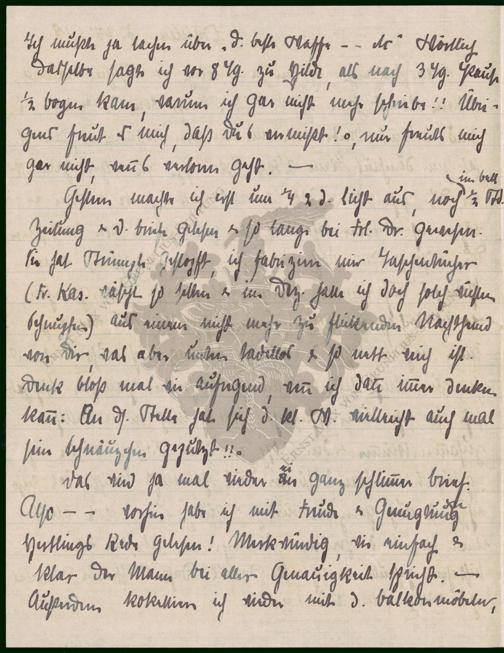 Ich mußte ja lachen über „d. beste Waffe -- etc" Wörtlich
dasselbe sagte ich vor 8 Tg. zu Hilde, als nach 3 Tg. Pause
½ bogen kam, warum ich gar nicht mehr schreibe!! Übri-
gens freut es mich, daß Du's vermißt! o, nur freuts mich
gar nicht, wenns verloren geht. —
Gestern machte ich erst um ¼ 2 d. Licht aus, noch ½ Std.
im bett
Zeitung & d. briefe gelesen & so lange bei Frl. Dr. gewesen.
Sie hat Strümpfe gestopft, ich fabriziere mir Taschentücher
(Fr. Kas. wäscht so selten & im Dez. hatte ich doch solch
Schnupfen) aus einem nicht mehr zu flickenden Nachthemd
von Dir, das aber unten tadellos & so nett weich ist.
Denk bloß mal wie aufregend, wenn ich dann immer denken
kann: An ds. Stelle hat sich d. kl. W. vielleicht auch mal
sein Schnäuzchen geputzt!!.
Das wird ja mal wieder ein ganz schlimmer brief.
Also -- vorhin habe ich mit Freude & Genugtuung
Hertlings Rede gelesen! Merkwürdig, wie einfach &
klar der Mann bei aller Genauigkeit spricht —
Außerdem kokettiere ich wieder mit d. balkonmöbeln,